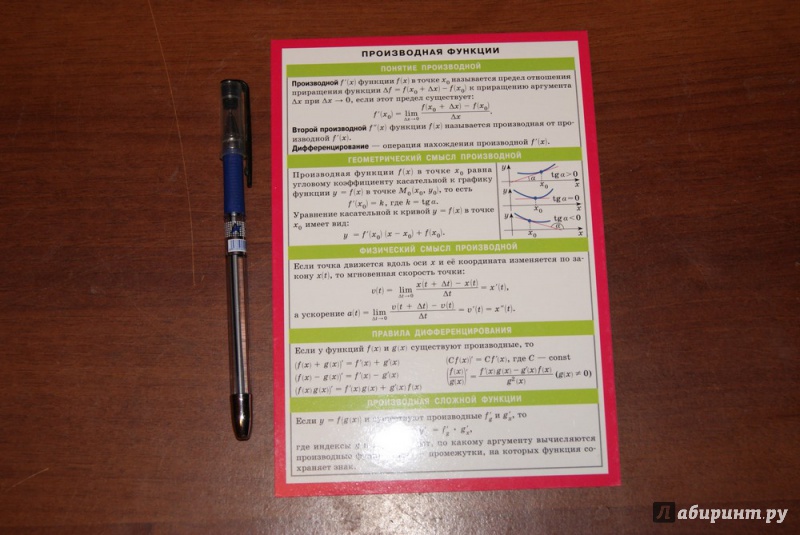 ПРОИЗВОДНАЯ ФУНКЦИИ
ПОНЯТИЕ ПРОИЗВОДНОЙ
Производной f′(x) функции f(x) в точке x₀ называется предел отношения
приращения функции Δf = f(x₀ + Δx) – f(x₀) к приращению аргумента
Δx при Δx → 0, если этот предел существует:
f′(x₀) = lim Δx→0 (f(x₀ + Δx) – f(x₀))/Δx.
Второй производной f″(x) функции f(x) называется производная от про-
изводной f′(x).
Дифференцирование — операция нахождения производной f′(x).
ГЕОМЕТРИЧЕСКИЙ СМЫСЛ ПРОИЗВОДНОЙ
Производная функции f(x) в точке x₀ равна
угловому коэффициенту касательной к графику
функции y = f(x) в точке M₀(x₀, y₀), то есть
f′(x₀) = k, где k = tg α.
Уравнение касательной к кривой y = f(x) в точке
x₀ имеет вид:
y = f′(x₀)(x – x₀) + f(x₀).
y α tg α>0
x₀ x
y tg α=0
x₀ x
y tg α<0
x₀ α x
ФИЗИЧЕСКИЙ СМЫСЛ ПРОИЗВОДНОЙ
Если точка движется вдоль оси x и её координата изменяется по за-
кону x(t), то мгновенная скорость точки:
v(t) = lim Δt→0 (x(t + Δt) – x(t))/Δt = x′(t),
а ускорение a(t) = lim Δt→0 (v(t + Δt) – v(t))/Δt = v′(t) = x″(t).
ПРАВИЛА ДИФФЕРЕНЦИРОВАНИЯ
Если у функций f(x) и g(x) существуют производные, то
(f(x) + g(x))′ = f′(x) + g′(x) (Cf(x))′ = Cf′(x), где C — const
(f(x) – g(x))′ = f′(x) – g′(x) (f(x)/g(x))′ = (f′(x)g(x) – g′(x)f(x))/g²(x) (g(x) ≠ 0)
(f(x)g(x))′ = f′(x)g(x) + g′(x)f(x)
ПРОИЗВОДНАЯ СЛОЖНОЙ ФУНКЦИИ
Если y = f(g(x)) и существуют производные f′g и g′x, то
= f′g · g′x,
где индексы g по какому аргументу вычисляются
производные промежутки, на которых функция со-
храняет знак.
Лабиринт.ру